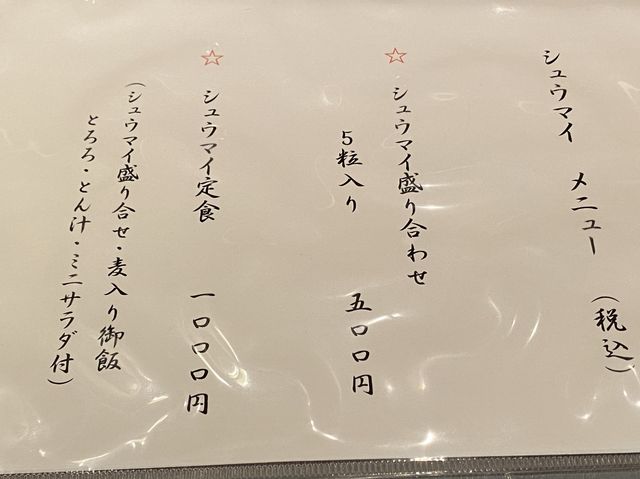 シュウマイ メニュー (税込)
☆ シュウマイ盛り合わせ
5粒入り 五〇〇円
☆ シュウマイ定食 一〇〇〇円
(シュウマイ盛り合せ・麦入り御飯
とろろ・とん汁・ミニサラダ付)